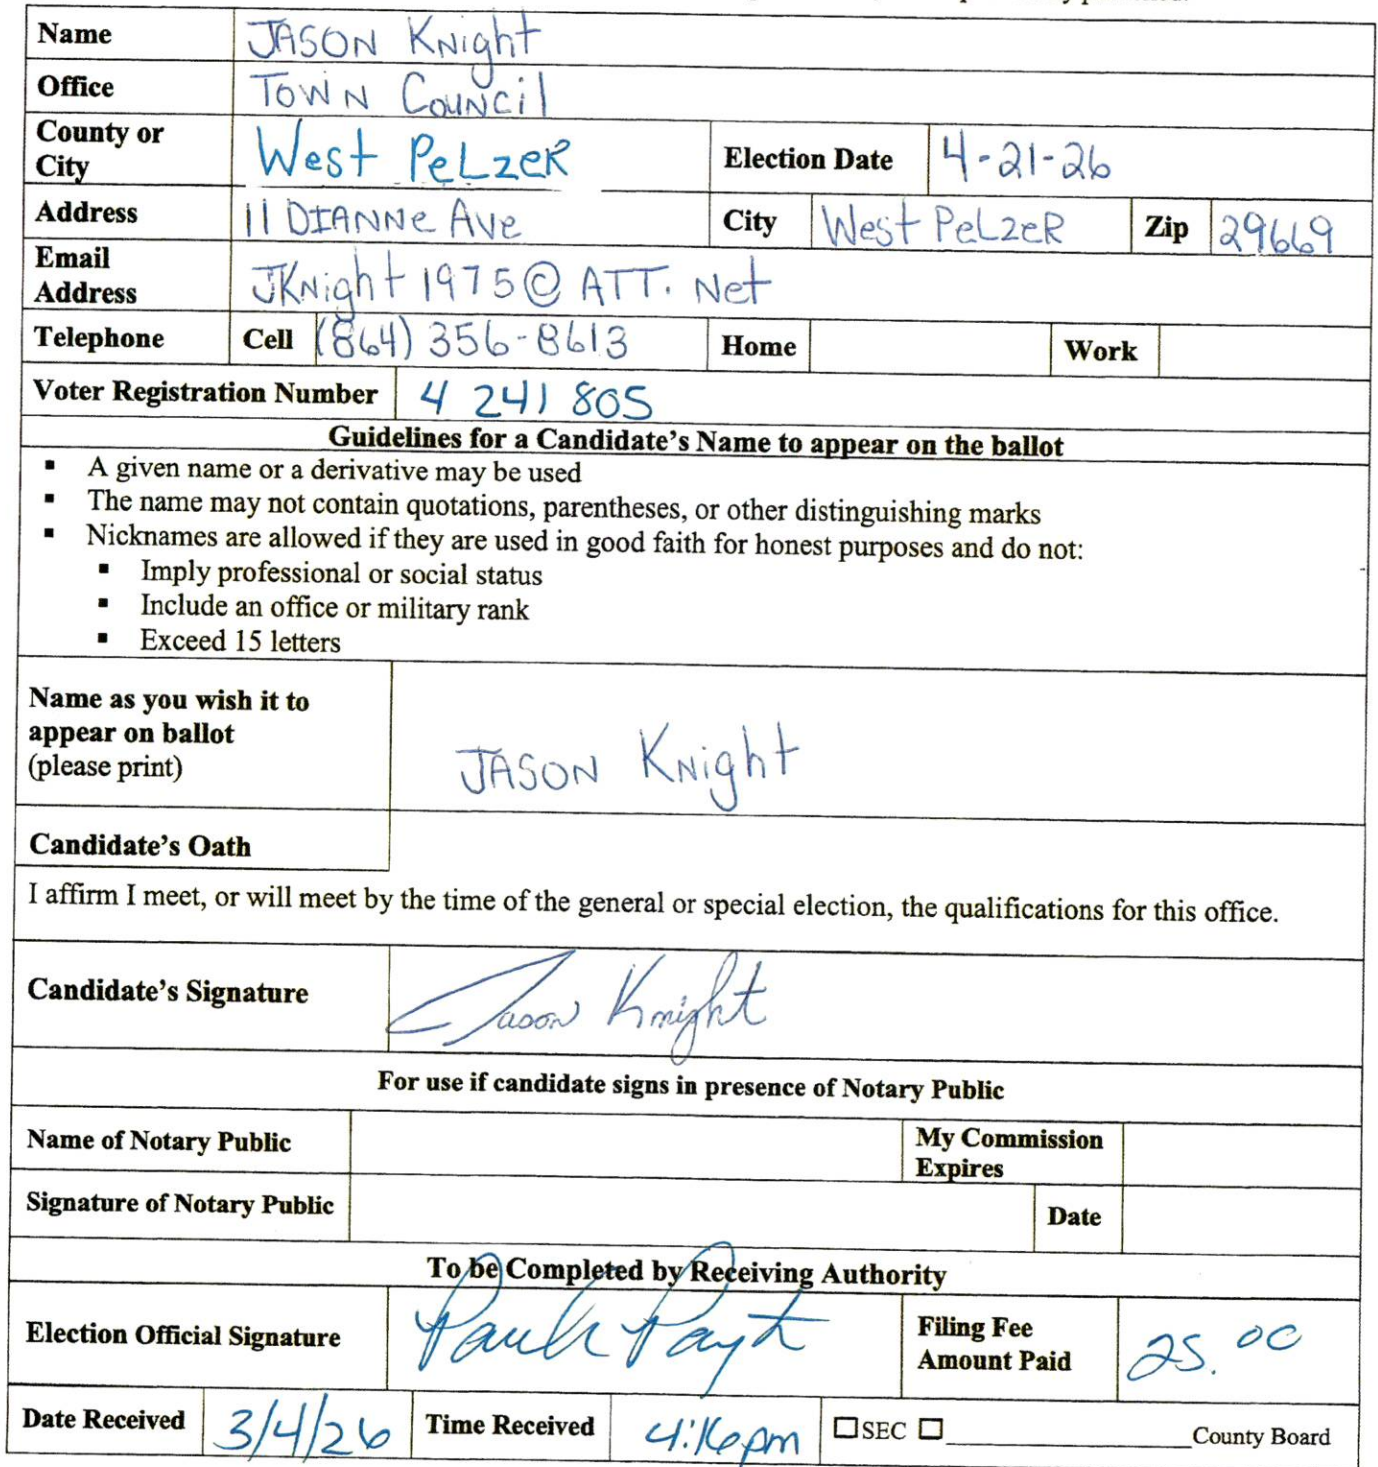 Name JASON Knight
Office TOWN Council
County or City West PeLzeR Election Date 4-21-26
Address 11 DIANNe Ave City West PeLzeR Zip 29669
Email Address JKnight1975@ATT.Net
Telephone Cell (864) 356-8613 Home Work
Voter Registration Number 4 241 805
Guidelines for a Candidate's Name to appear on the ballot
▪ A given name or a derivative may be used
▪ The name may not contain quotations, parentheses, or other distinguishing marks
▪ Nicknames are allowed if they are used in good faith for honest purposes and do not:
▪ Imply professional or social status
▪ Include an office or military rank
▪ Exceed 15 letters
Name as you wish it to
appear on ballot
(please print) JASON Knight
Candidate's Oath
I affirm I meet, or will meet by the time of the general or special election, the qualifications for this office.
Candidate's Signature Jason Knight
For use if candidate signs in presence of Notary Public
Name of Notary Public My Commission Expires
Signature of Notary Public Date
To be Completed by Receiving Authority
Election Official Signature Filing Fee Amount Paid 25.00
Date Received 3/4/26 Time Received 4:16pm ☐SEC ☐ County Board